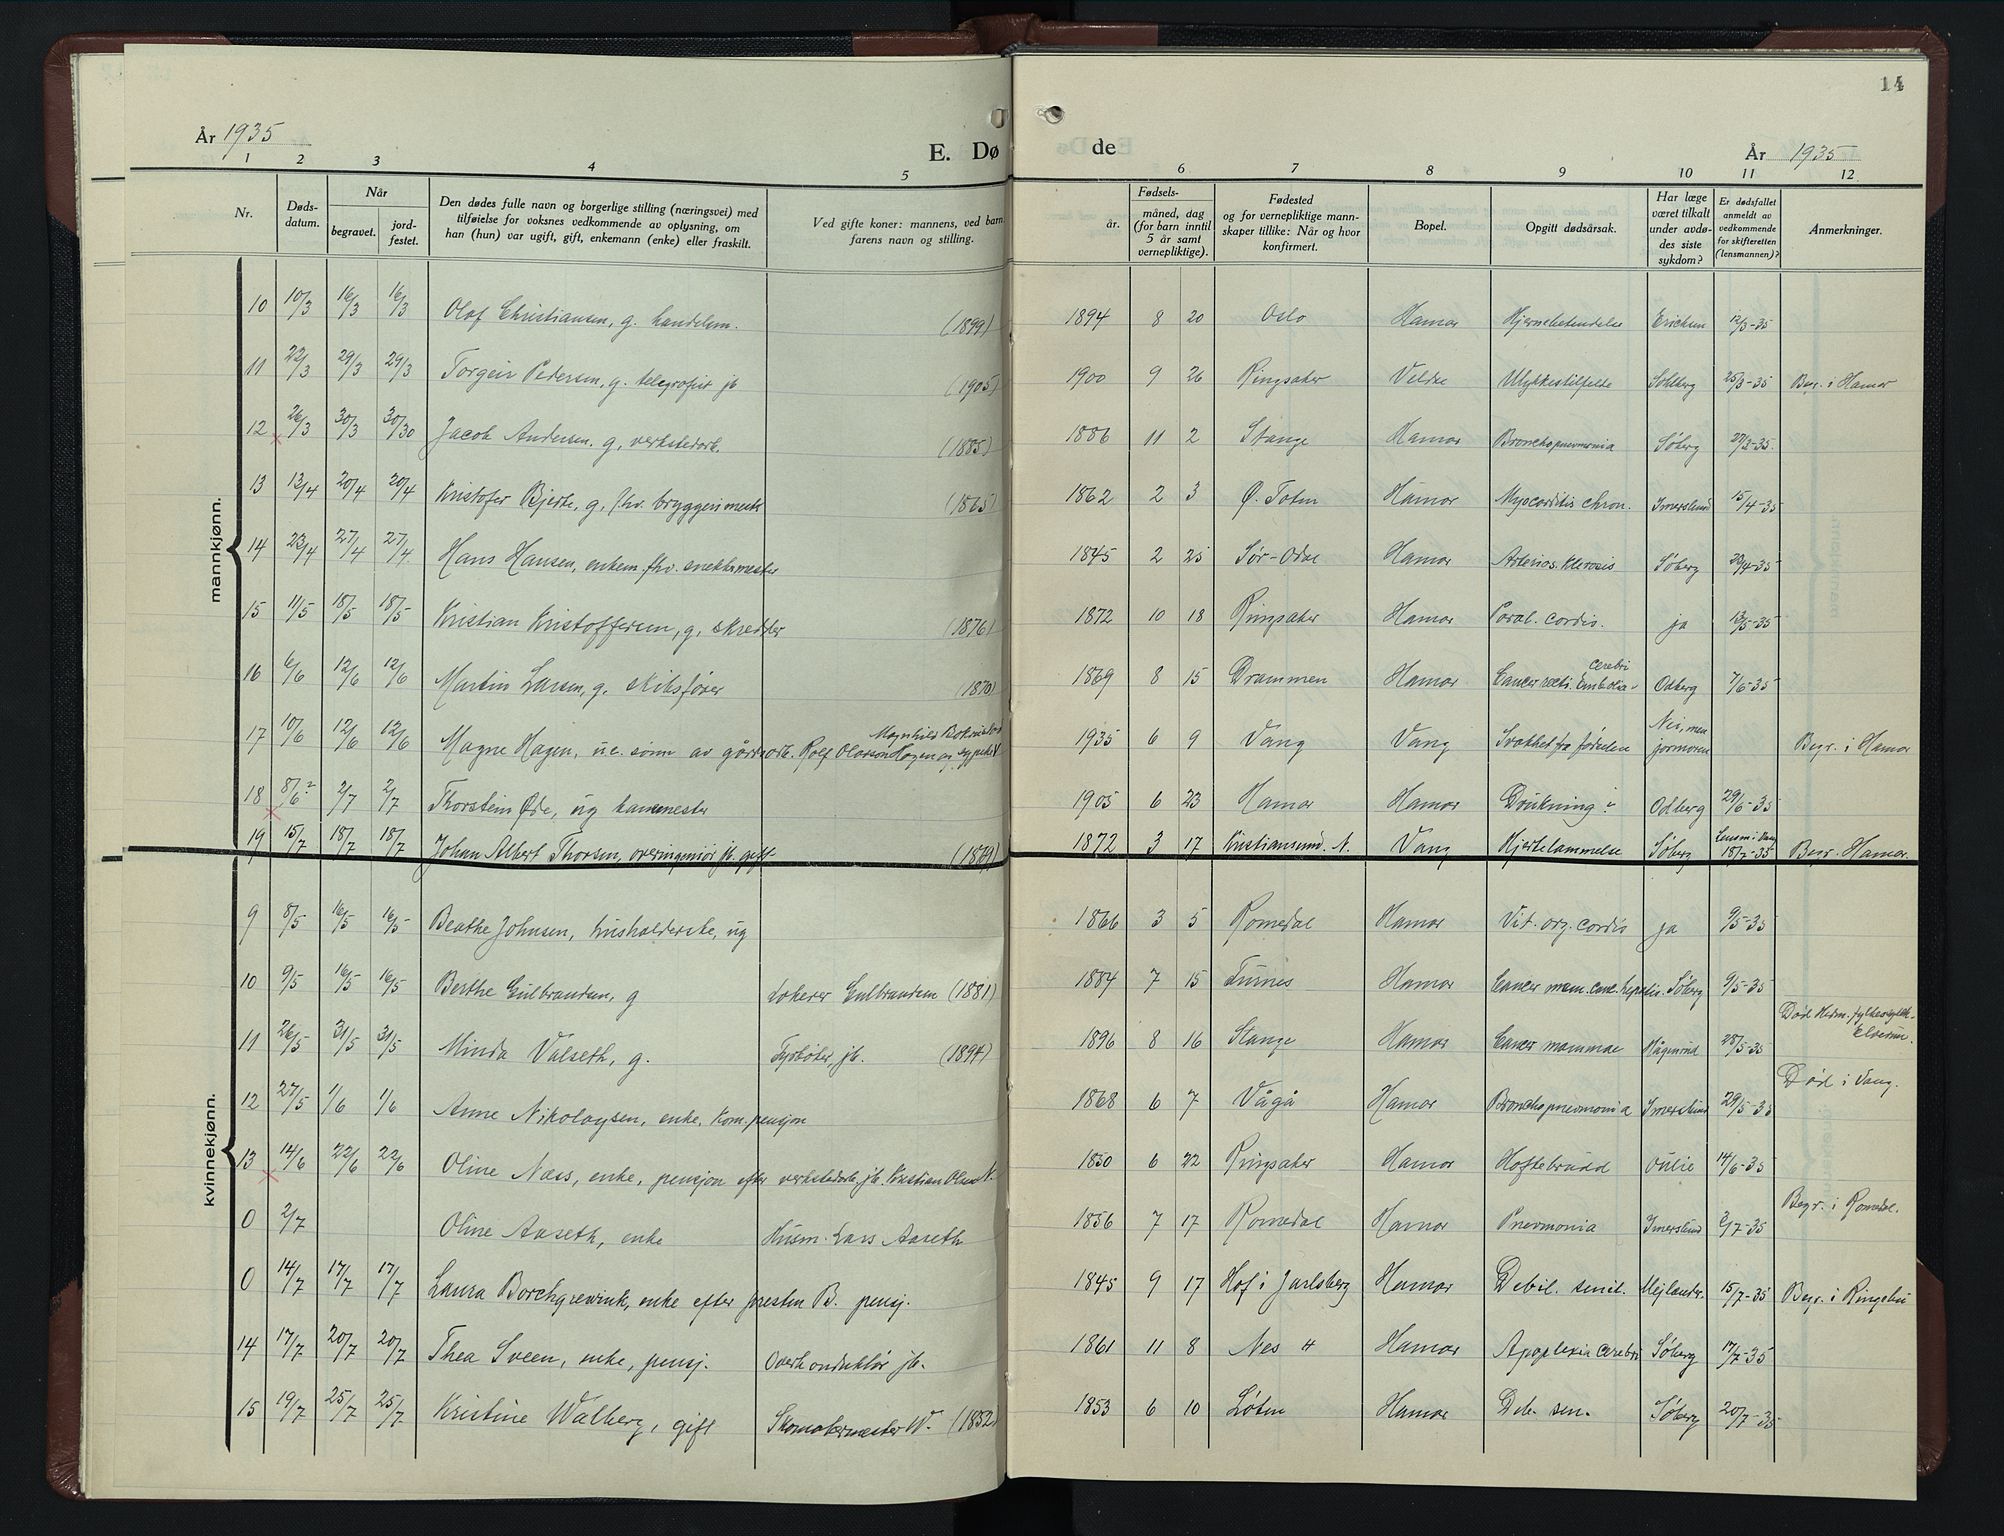 14
År 1935 E. Dø de År 1935
1 2 3 4 5 6 7 8 9 10 11 12
Nr. Døds-datum. Når begravet. jord-festet. Den dødes fulle navn og borgerlige stilling (næringsvei) med tilføielse for voksnes vedkommende av oplysning, om han (hun) var ugift, gift, enkemann (enke) eller fraskilt. Ved gifte koner: mannens, ved barn farens navn og stilling. Fødsels- år. måned, dag (for barn inntil 5 år samt vernepliktige). Fødested og for vernepliktige mannskaper tillike: Når og hvor konfirmert. Bopel. Opgitt dødsårsak. Har læge været tilkalt under avdødes siste sykdom? Er dødsfallet anmeldt av vedkommende for skifteretten (lensmannen)? Anmerkninger.
mannkjønn.
10 10/3 16/3 16/3 Olaf Christiansen, g. handelsm. (1899) 1894 8 20 Oslo Hamar Hjernebetendelse Erichsen 12/3-35
11 22/3 29/3 29/3 Torgeir Pedersen, g. telegrafist jb (1905) 1900 9 26 Ringsaker Veldre Ulykkestilfelde Sohlberg 25/3-35 Begr. i Hamar
12 26/3 30/3 30/30 Jacob Andersen. g, verkstedarb. (1885) 1886 11 2 Stange Hamar Bronchopneumonia Søberg 27/3-35.
13 13/4 20/4 20/4 Kristofer Bjerke, g, fhv. bryggerimester (1865) 1862 2 3 Ø. Toten Hamar Myocarditis chron. Imerslund 15/4-35
14 23/4 27/4 27/4. Hans Hansen, enkem. fhv. snekkermester 1845 2 25 Sør-Odal Hamar Arterios.klerosis Søberg /4-35
15 11/5 18/5 18/5 Kristian Kristoffersen, g. skredder (1876) 1872 10 18 Ringsaker Hamar Paral. cordis. ja 13/5-35
16 6/6 12/6 12/6 Martin Larsen, g. skibsfører (1870) 1869 8 15 Drammen Hamar Cancer recti. Embolia cerebri Odberg 7/6-35
17 10/6 12/6 12/6 Magne Hagen, u.e. sønn av gårdsarb. Rolf Olasson Hagen og sypike Magnhild 1935 6 9 Vang Vang Svakhet fra fødselen Nei, men jormoren Begr. i Hamar
18 8/6? 2/7 2/7 Thorstein Øde, ug kannemester 1905 6 23 Hamar Hamar Drukning i Odberg 29/6-35
19 15/7 18/7 18/7 Johan Albert Thorsen, overingeniør jb. gift (1879) 1872 3 17 Kristiansund. N. Vang Hjertelammelse Søberg Lensm i Vang 18/7-35 Begr. Hamar.
kvinnekjønn.
9 8/5 16/5 16/5 Beathe Johnsen, husholderske, ug 1866 3 5 Romedal Hamar Vit. org. cordis ja 9/5-35
10 9/5 16/5 16/5 Berthe Gulbrandsen, g Lokerer Gulbrandsen (1881) 1884 7 15 Furnes Hamar Cancer mam. canc. hepatis. Søberg 9/5-35
11 26/5 31/5 31/5 Minda Valseth, g. Fyrbøter, jb. (1894) 1896 8 16 Stange Hamar Cancer mammae Hågenrud 28/5-35 Død Hedm. fylkessykeh. Elverum.
12 27/5 1/6 1/6 Anne Nikolaysen, enke, kom.pensjon 1868 6 7 Vågå Hamar Bronchopneumonia Imerslund 29/5-35 Død i Vang.
13 14/6 22/6 22/6 Oline Næss, enke, pensjon efter verkstedarb, jb. Kristian Olsen N. 1850 6 22 Ringsaker Hamar Hoftebrudd Oulie 14/6-35
0 2/7 Oline Aaseth, enke Husm. Lars Aaseth 1856 7 17 Romedal Hamar Pneumonia Imerslund 2/7-35 Begr. i Romedal.
0 14/7 17/7 17/7 Laura Borchgrewink, enke efter presten B. pensj. 1845 9 17 Hof i Jarlsberg Hamar Debil. senil. Mejlænder. 15/7-35 Begr. i Ringebu
14 17/7 20/7 20/7 Thea Sveen, enke, pensj. Overkonduktør jb. 1861 11 8 Nes H Hamar Apoplexia cerebri Søberg 17/7-35
15 19/7 25/7 25/7 Kristine Walberg, gift Skomakermester W. (1852) 1853 6 10 Løten Hamar Deb. sen. Søberg 20/7-35